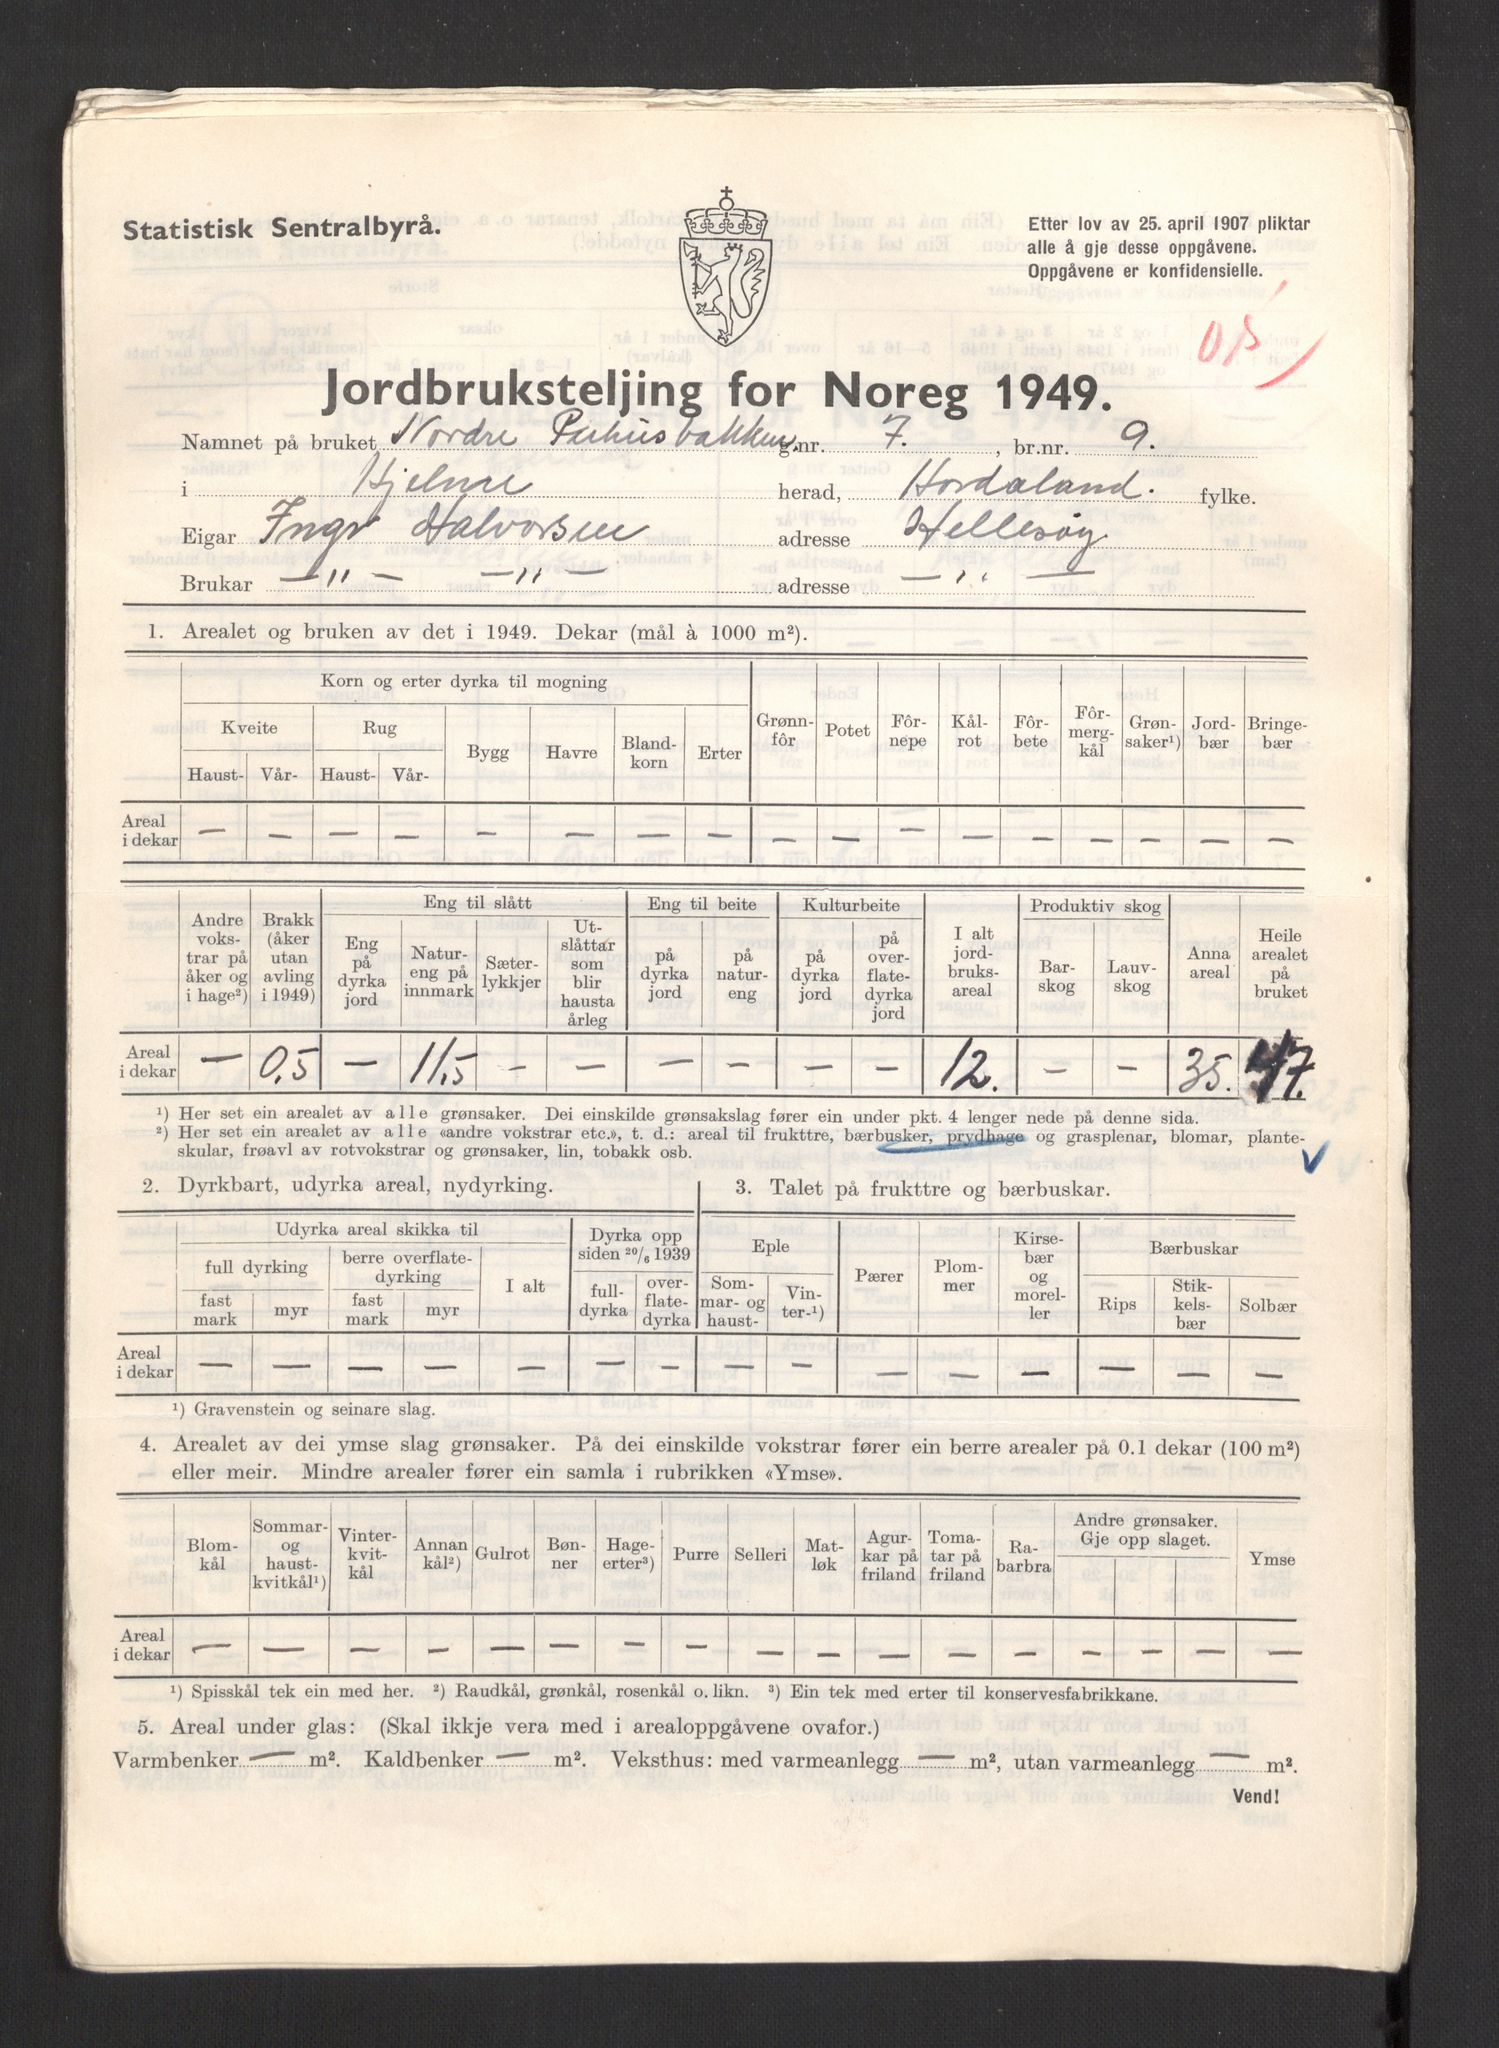 Statistisk Sentralbyrå.
Etter lov av 25. april 1907 pliktar
alle å gje desse oppgåvene.
Oppgåvene er konfidensielle.
Jordbruksteljing for Noreg 1949.
Namnet på bruket Nordre g.nr. 7. , br.nr. 9.
i Hjelme herad, Hordaland. fylke.
Eigar Inga Halvorsen adresse Hellesøy
Brukar — " — — " — adresse — " —
1. Arealet og bruken av det i 1949. Dekar (mål à 1000 m²).
Korn og erter dyrka til mogning
Kveite Rug Bygg Havre Bland-korn Erter Grønn-fôr Potet Fôr-nepe Kål-rot Fôr-bete Fôr-merg-kål Grøn-saker¹) Jord-bær Bringe-bær
Haust- Vår- Haust- Vår-
Areal i dekar — — — — — — — — — — — — — — — — —
Andre voks-trar på åker og i hage²) Brakk (åker utan avling i 1949) Eng til slått Eng til beite Kulturbeite I alt jord-bruks-areal Produktiv skog Anna areal Heile arealet på bruket
Eng på dyrka jord Natur-eng på innmark Sæter-lykkjer Ut-slåttar som blir hausta årleg på dyrka jord på natur-eng på dyrka jord på over-flate-dyrka jord Bar-skog Lauv-skog
Areal i dekar — 0,5 — 11,5 — — — — — — 12. — — 35. 47.
¹) Her set ein arealet av alle grønsaker. Dei einskilde grønsakslag fører ein under pkt. 4 lenger nede på denne sida.
²) Her set ein arealet av alle «andre vokstrar etc.», t. d.: areal til frukttre, bærbusker, prydhage og grasplenar, blomar, plante-
skular, frøavl av rotvokstrar og grønsaker, lin, tobakk osb.
2. Dyrkbart, udyrka areal, nydyrking.
3. Talet på frukttre og bærbuskar.
Udyrka areal skikka til Dyrka opp siden 20/6 1939 Eple Pærer Plom-mer Kirse-bær og morel-ler Bærbuskar
full dyrking berre overflate-dyrking I alt full-dyrka over-flate-dyrka Som-mar- og haust- Vin-ter-¹) Rips Stik-kels-bær Solbær
fast mark myr fast mark myr
Areal i dekar — — — — — — — — — — — — — — —
¹) Gravenstein og seinare slag.
4. Arealet av dei ymse slag grønsaker. På dei einskilde vokstrar fører ein berre arealer på 0.1 dekar (100 m²)
eller meir. Mindre arealer fører ein samla i rubrikken «Ymse».
Blom-kål Sommar- og haust-kvitkål¹) Vinter-kvit-kål Annan kål²) Gulrot Bøn-ner Hage-erter³) Purre Selleri Mat-løk Agur-kar på friland Toma-tar på friland Ra-barbra Andre grønsaker. Gje opp slaget. Ymse
Areal i dekar — — — — — — — — — — — — — — — — —
¹) Spisskål tek ein med her. ²) Raudkål, grønkål, rosenkål o. likn. ³) Ein tek med erter til konservesfabrikkane.
5. Areal under glas: (Skal ikkje vera med i arealoppgåvene ovafor.)
Varmbenker — m². Kaldbenker — m². Veksthus: med varmeanlegg — m², utan varmeanlegg — m².
Vend!